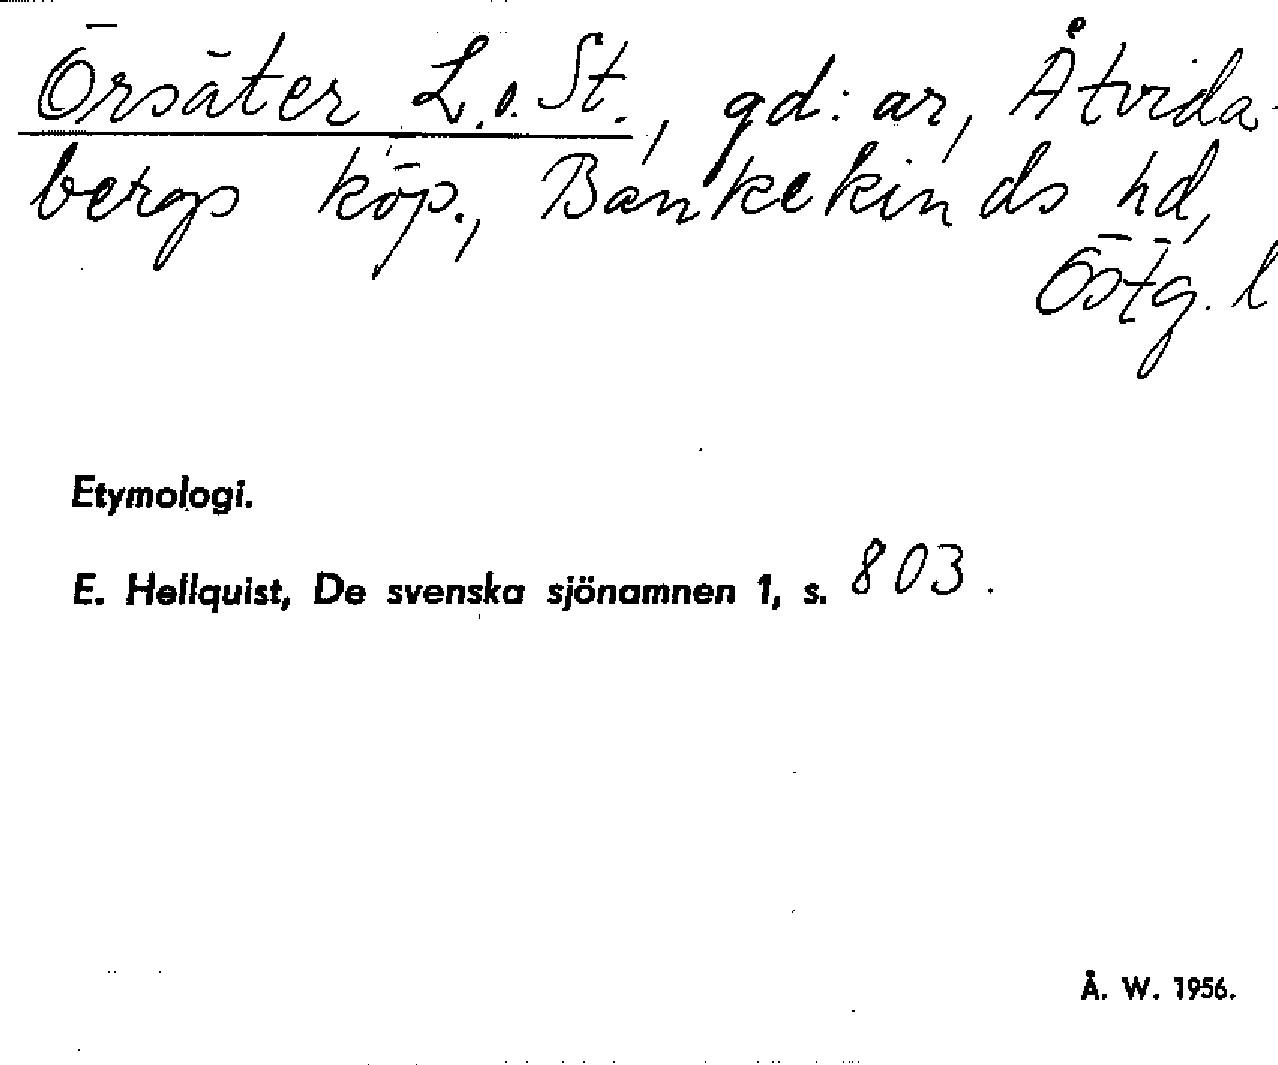 Örsäter L. o. St., gd: ar, Åtvida-
bergs köp., Bankekinds hd,
Östg. l
Etymologi.
E. Hellquist, De svenska sjönamnen 1, s. 803.
Å. W. 1956.